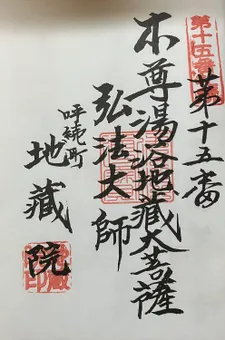 第十五番
第十五番
本尊湯谷地蔵大菩薩
弘法大師
地蔵院